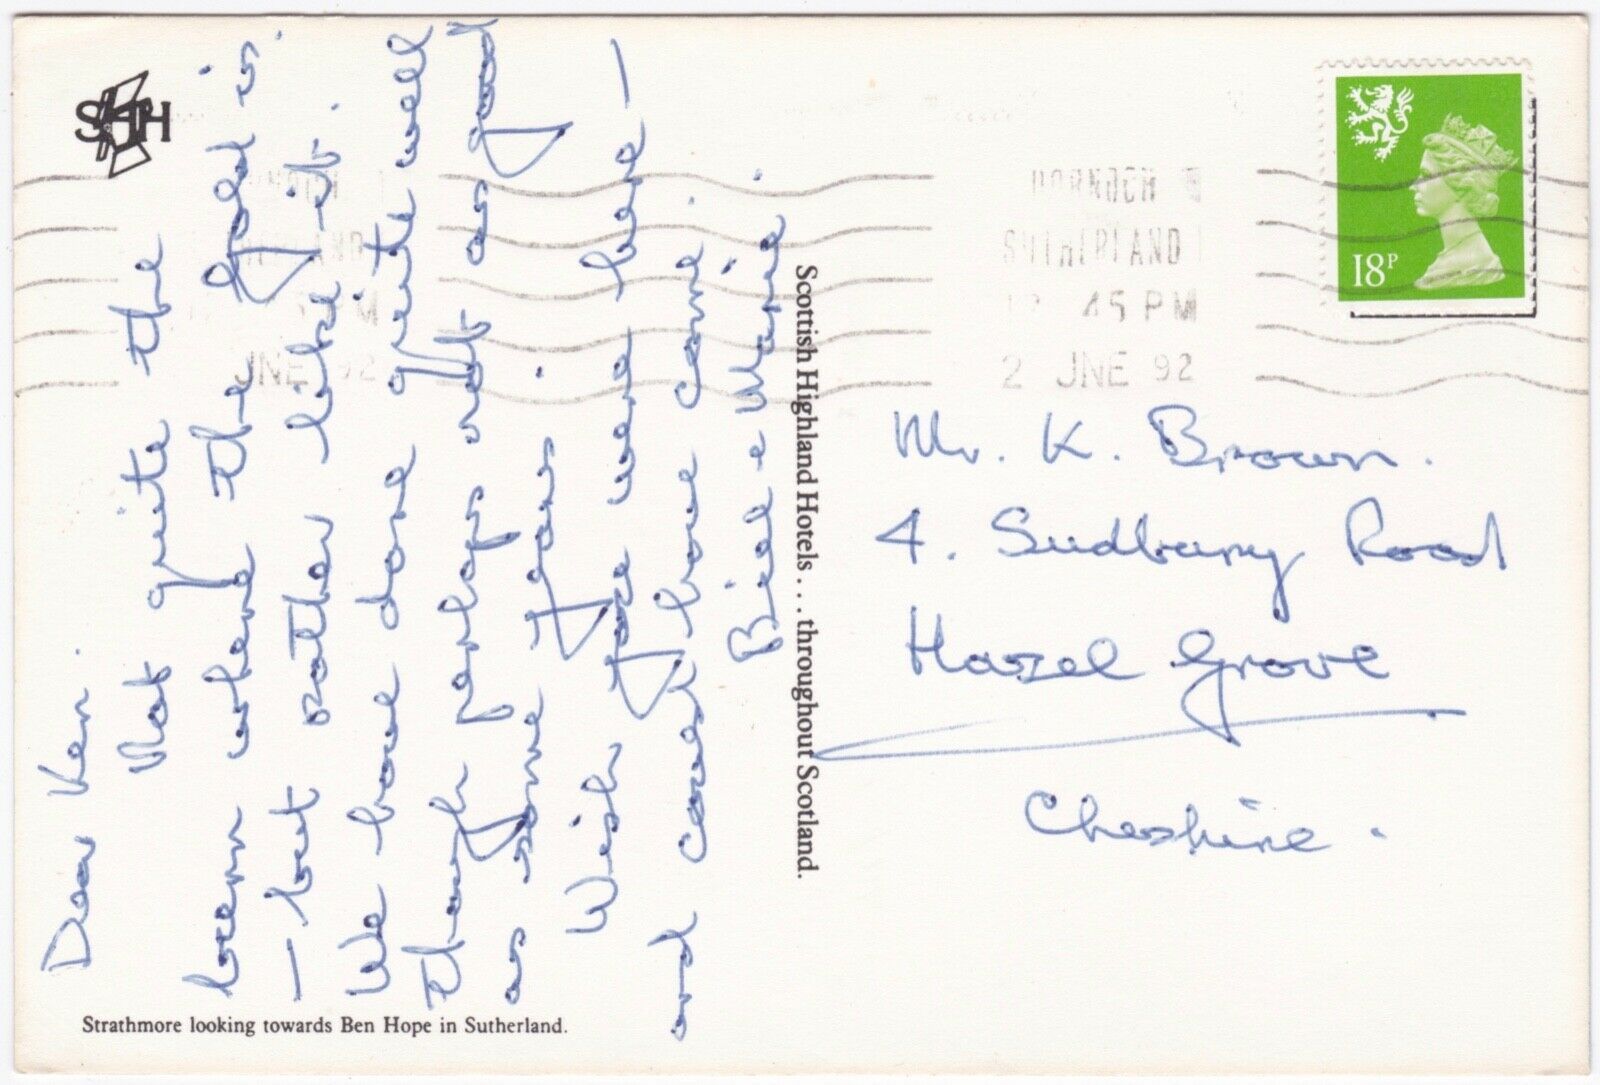 SHH
Dear Ken.
Not quite the
burn where the gold is.
— but rather like it.
We have done quite well
though perhaps not as good
as some years.
Wish you were here —
and could have come.
Bill & Marie.
Strathmore looking towards Ben Hope in Sutherland.
Scottish Highland Hotels . . . throughout Scotland.
DORNOCH
SUTHERLAND
45 PM
2 JNE 92
18P
Mr. K. Brown.
4. Sudbury Road
Hazel Grove
Cheshire.